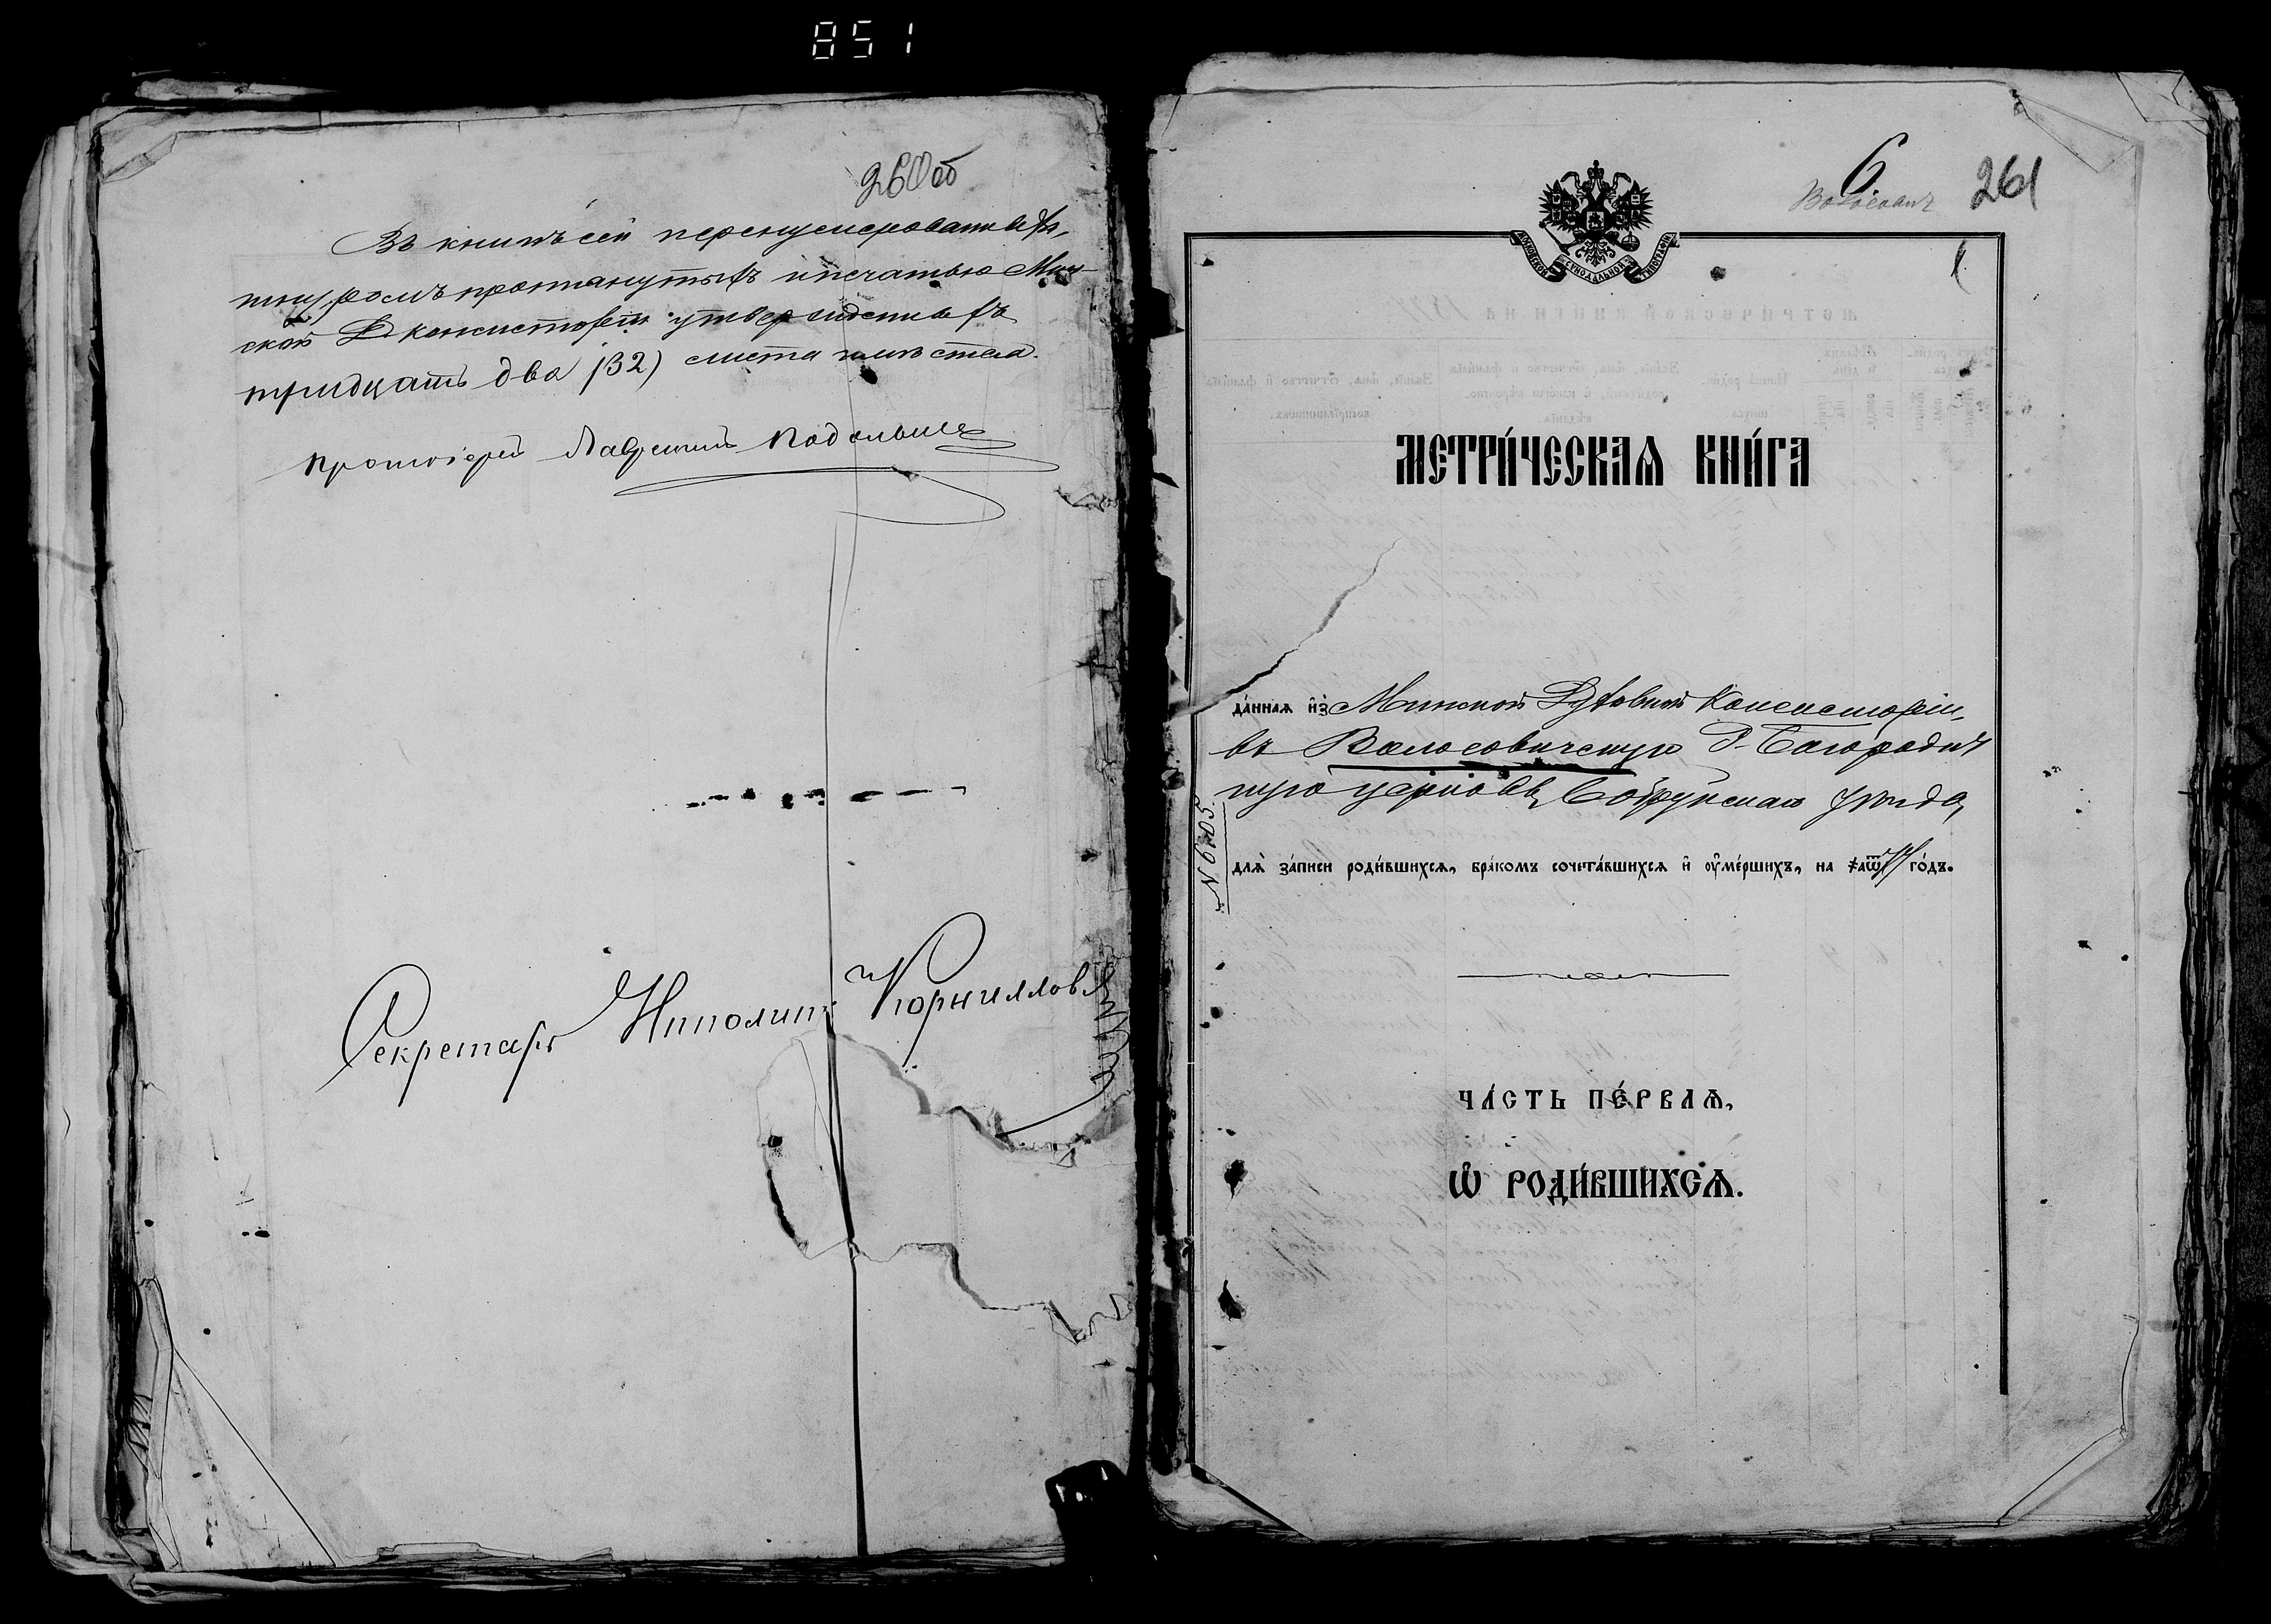 851
260 об
Въ книгѣ сей перенумерованныхъ,
шнуромъ протянутыхъ и печатью Мин-
ской Д. Консисторіи утвержденныхъ
тридцать два (32) листа
Протоіерей Лаврентій
Секретарь Ипполитъ Корниллов
6 261
1
МОСКОВСКОЙ СѴНОДАЛЬНОЙ ТИПОГРАФІИ
МЕТРИ́ЧЕСКАѦ КНИ́ГА
да́ннаѧ и҆з̾ Минской Духовной Консисторіи,
въ Волосовичскую Р.-Богородич
ную церковь, Бобруйскаго уѣзда,
№ 6205.
длѧ̀ за́писи роди́вшихсѧ, бра́комъ сочета́вшихсѧ и҆ ᲂу҆ме́ршихъ, на ҂аѿ77 го́дъ.
ЧА́СТЬ ПЕ́РВАѦ,
Ѡ҆ РОДИ́ВШИХСѦ.